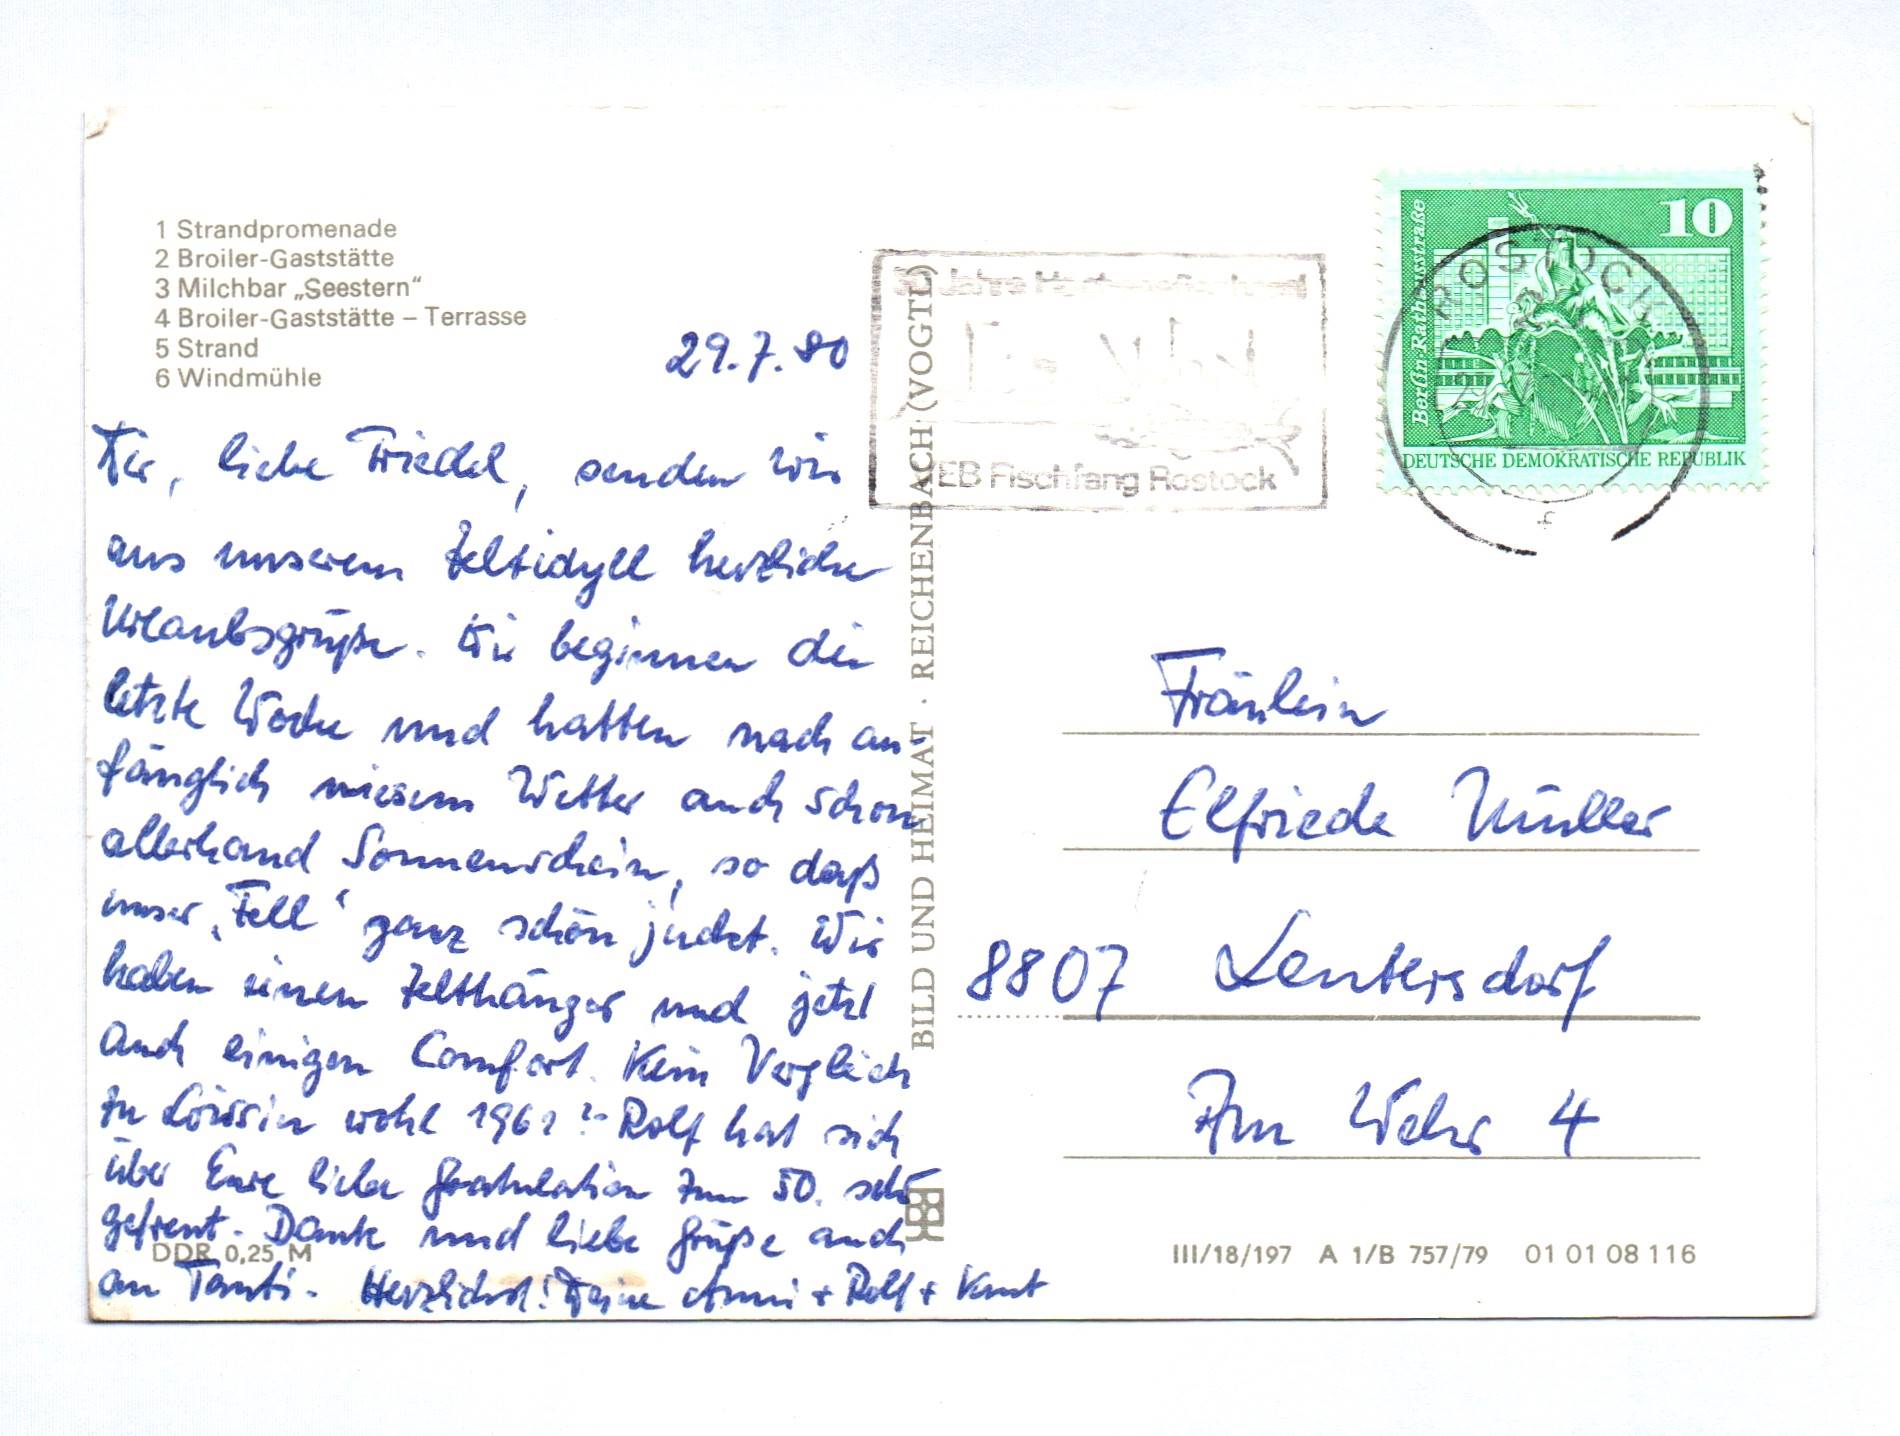 1 Strandpromenade
2 Broiler-Gaststätte
3 Milchbar „Seestern“
4 Broiler-Gaststätte – Terrasse
5 Strand
6 Windmühle
29.7.80
Dir, liebe Friedel, senden wir
aus unserem Zeltidyll herzliche
Urlaubsgrüße. Wir beginnen die
letzte Woche und hatten nach an-
fänglich miesem Wetter auch schon
allerhand Sonnenschein, so daß
unser „Fell“ ganz schön juckt. Wir
haben einen Zelthänger und jetzt
auch einigen Comfort. Kein Vergleich
zu Loissin wohl 1961? Rolf hat sich
über Eure liebe Gratulation zum 50. sehr
gefreut. Danke und liebe Grüße auch
an Tanti. Herzlichst! Deine Anni + Rolf + Knut
DDR 0,25 M
BILD UND HEIMAT · REICHENBACH (VOGTL)
50 Jahre
VEB Fischfang Rostock
ROSTOCK
10
Berlin-Rathausstraße
DEUTSCHE DEMOKRATISCHE REPUBLIK
Fräulein
Elfriede Müller
8807 Leutersdorf
Am Wehr 4
III/18/197 A 1/B 757/79 01 01 08 116